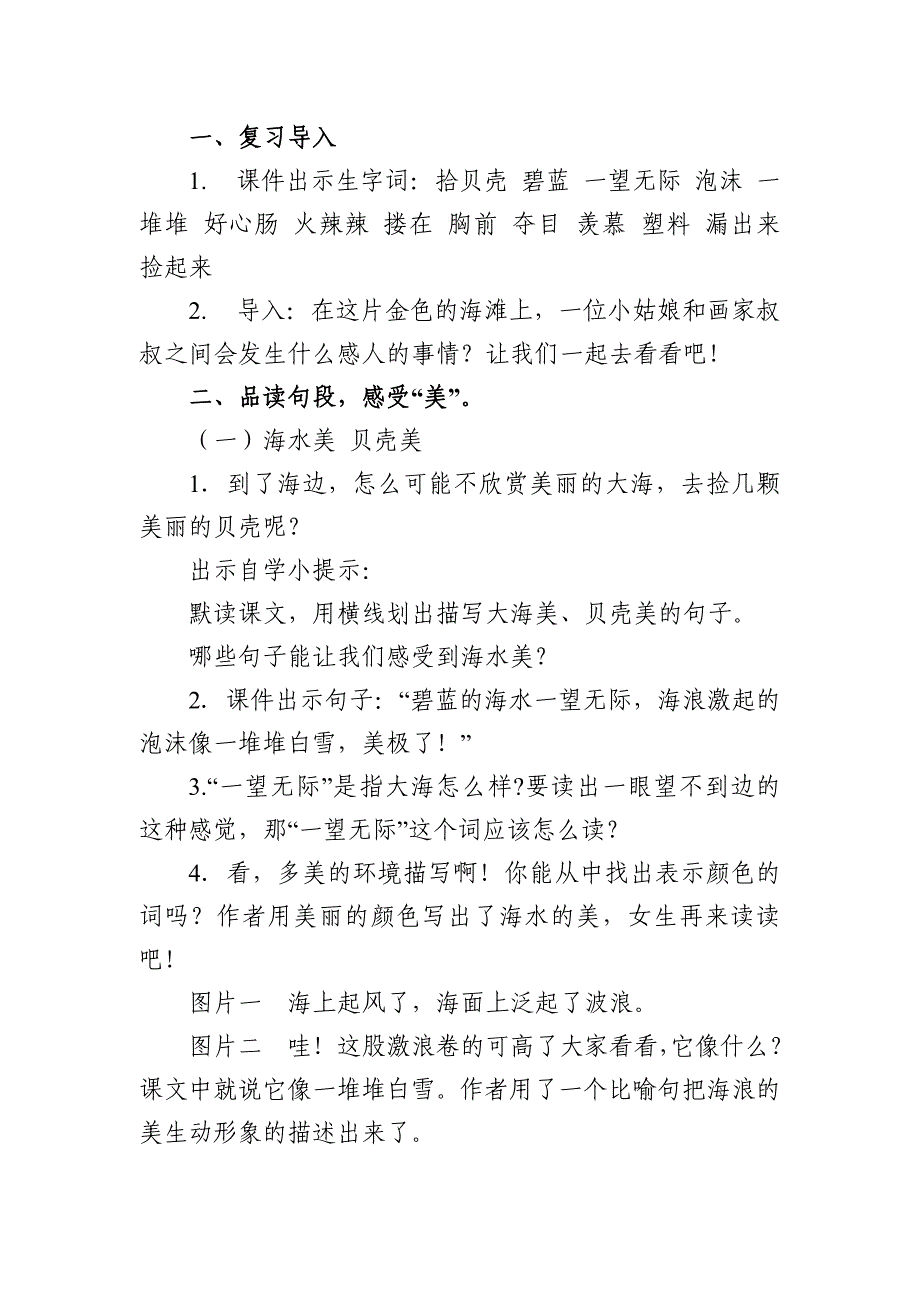 一、复习导入
1. 课件出示生字词：拾贝壳 碧蓝 一望无际 泡沫 一
堆堆 好心肠 火辣辣 搂在 胸前 夺目 羡慕 塑料 漏出来
捡起来
2. 导入：在这片金色的海滩上，一位小姑娘和画家叔
叔之间会发生什么感人的事情？让我们一起去看看吧！
二、品读句段，感受“美”。
（一）海水美 贝壳美
1. 到了海边，怎么可能不欣赏美丽的大海，去捡几颗
美丽的贝壳呢？
出示自学小提示：
默读课文，用横线划出描写大海美、贝壳美的句子。
哪些句子能让我们感受到海水美？
2. 课件出示句子：“碧蓝的海水一望无际，海浪激起的
泡沫像一堆堆白雪，美极了！”
3.“一望无际”是指大海怎么样?要读出一眼望不到边的
这种感觉，那“一望无际”这个词应该怎么读？
4. 看，多美的环境描写啊！你能从中找出表示颜色的
词吗？作者用美丽的颜色写出了海水的美，女生再来读读
吧！
图片一 海上起风了，海面上泛起了波浪。
图片二 哇！这股激浪卷的可高了大家看看，它像什么？
课文中就说它像一堆堆白雪。作者用了一个比喻句把海浪的
美生动形象的描述出来了。